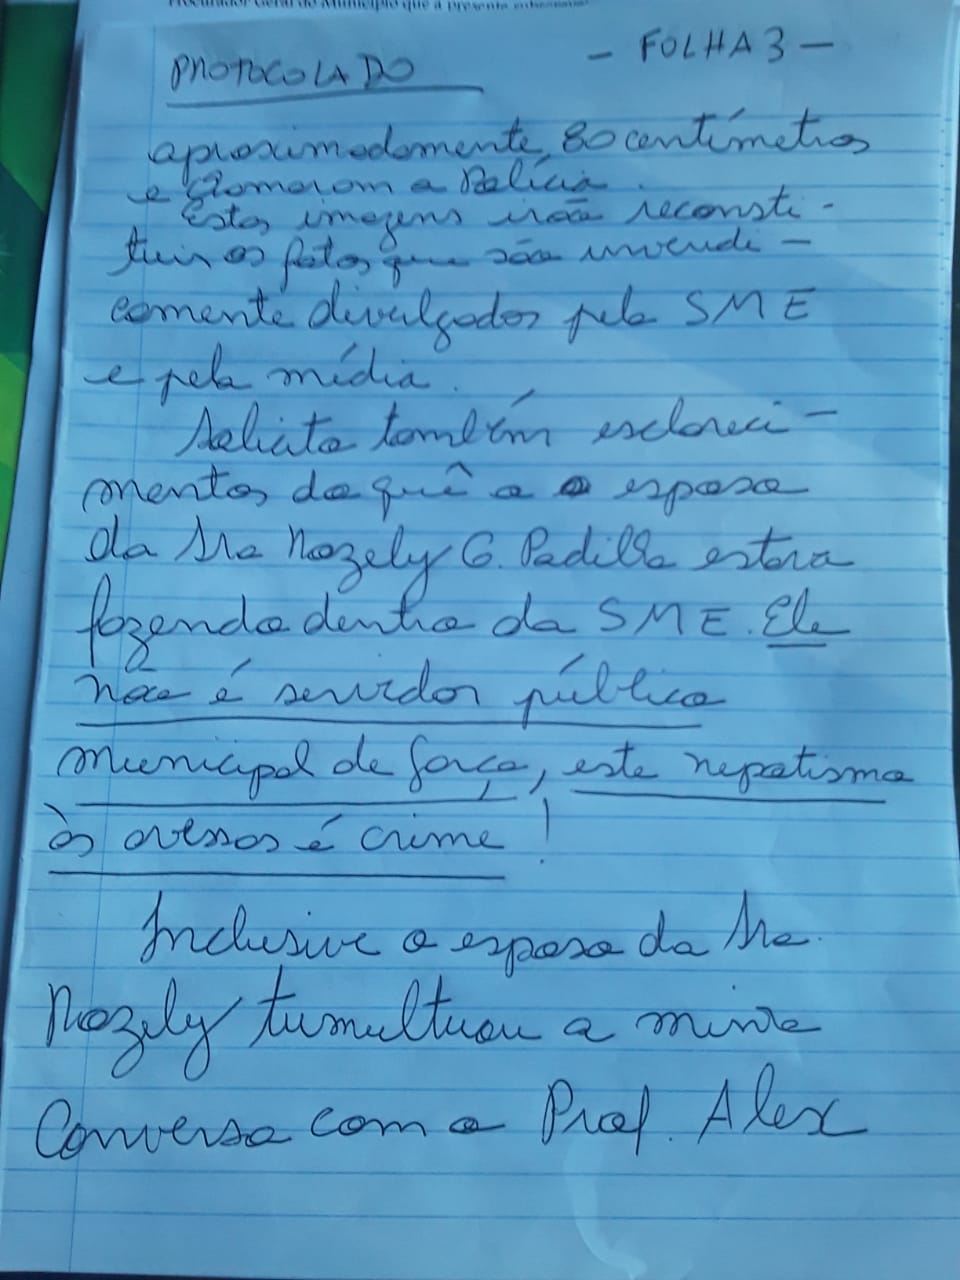 Procurador Geral do Município que a presente
- FOLHA 3 -
PROTOCOLADO
aproximadamente 80 centímetros
e chamaram a Polícia.
Estas imagens irão reconsti-
tuir os fatos que são inveridi-
camente divulgados pela SME
e pela mídia.
Solicito também escloreci-
mentos do quê o esposo
da Sra Nozely G. Padilla estava
fazendo dentro da SME. Ele
não é servidor público
municipal de Garça, este nepotismo
às avessas é crime!
Inclusive o esposo da Sra.
Nozely tumultuou a minha
conversa com o Prof. Alex